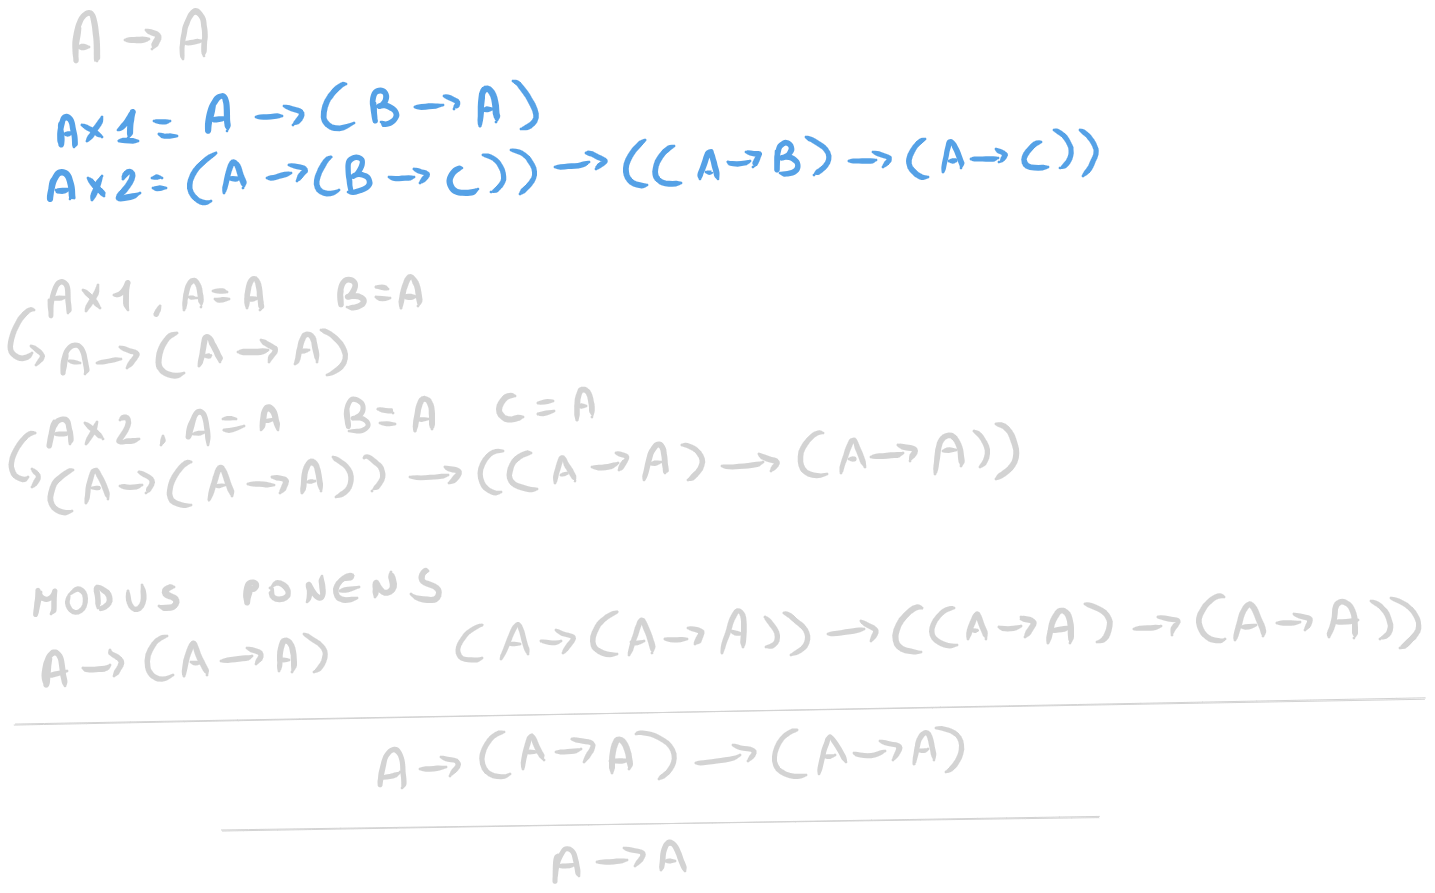 A → A
Ax1 = A → (B → A)
Ax2 = (A → (B → C)) → ((A → B) → (A → C))
Ax1, A = A B = A
A → (A → A)
Ax2, A = A B = A C = A
(A → (A → A)) → ((A → A) → (A → A))
MODUS PONENS
A → (A → A) (A → (A → A)) → ((A → A) → (A → A))
A → (A → A) → (A → A)
A → A